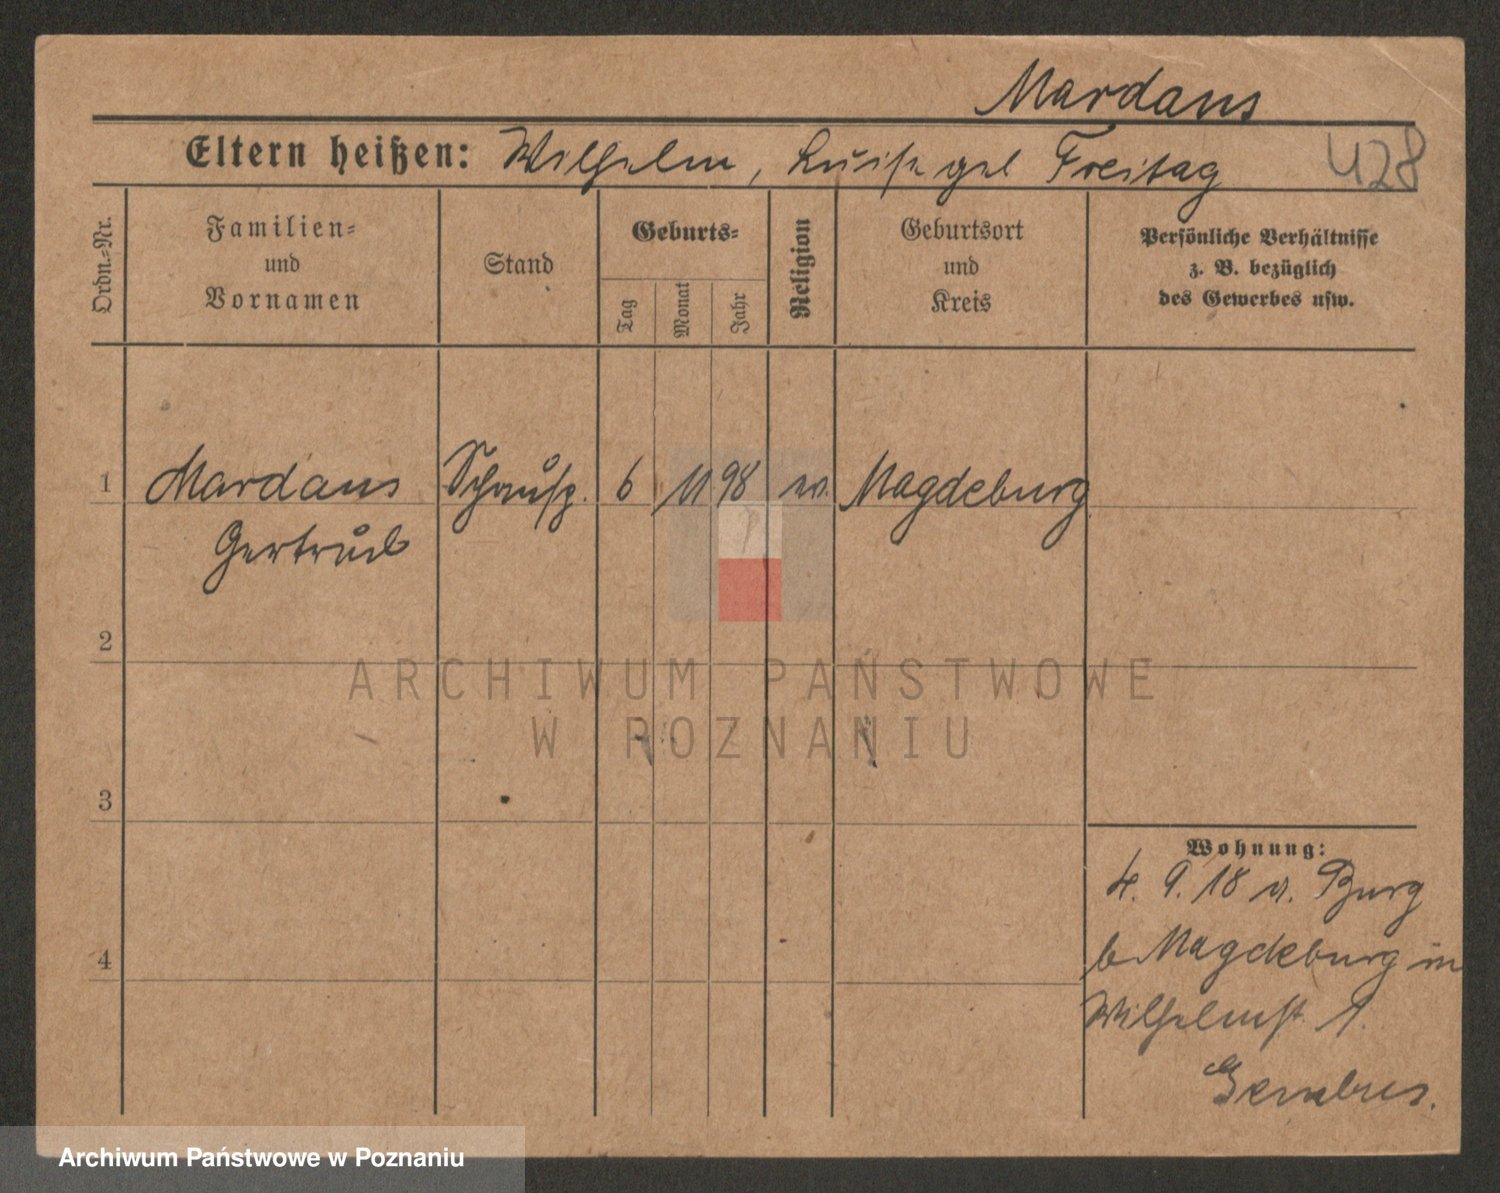 Mardaus
Eltern heißen: Wilhelm, Luise geb Freitag
428
Ordn.=Nr.
Familien=
und
Vornamen
Stand
Geburts=
Tag
Monat
Jahr
Religion
Geburtsort
und
Kreis
Persönliche Verhältnisse
z. B. bezüglich
des Gewerbes usw.
1
Mardaus Schausp. 6 11 98 ev. Magdeburg
Gertrud
2
3
4
Wohnung:
4. 9. 18 v. Burg
b. Magdeburg in
Wilhelmst. 1.
ARCHIWUM PAŃSTWOWE
W POZNANIU
Archiwum Państwowe w Poznaniu